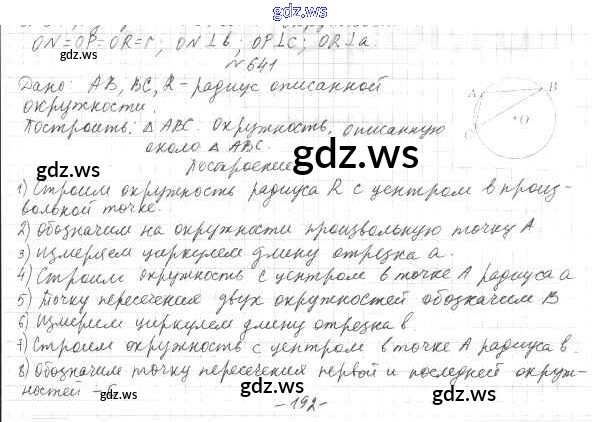 gdz.ws
ON=OP=OR=r; ON⊥b; OP⊥c; OR⊥a.
gdz.ws
№641
Дано: AB, BC, R - радиус описанной
окружности.
A B
O
C
Построить: △ ABC. окружность, описанную
около △ ABC.
gdz.ws gdz.ws
Построение
1) Строим окружность радиуса R с центром в произ-
вольной точке.
gdz.ws
2) Обозначим на окружности произвольную точку A.
3) Измеряем циркулем длину отрезка a.
4) Строим окружность с центром в точке A радиуса a
gdz.ws gdz.ws
5) Точку пересечения двух окружностей обозначим B
6) Измерим циркулем длину отрезка b.
gdz.ws
7) Строим окружность с центром в точке A радиуса b.
8) Обозначим точку пересечения первой и последней окруж-
gdz.ws gdz.ws
ностей -
-192-
gdz.ws